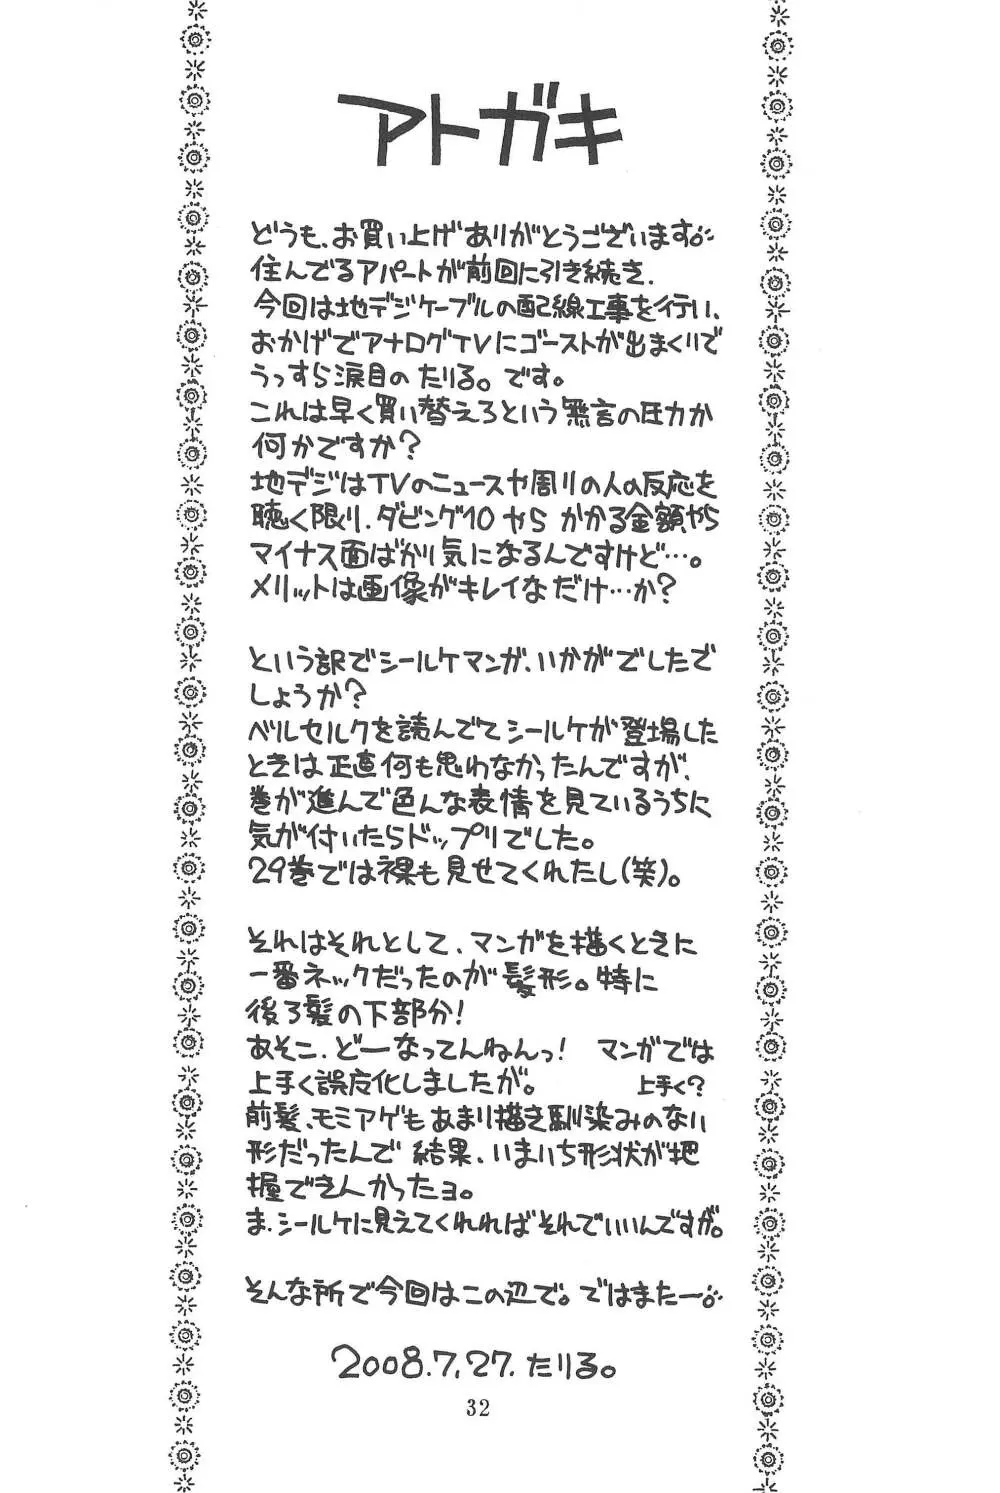 アトガキ
どうも、お買い上げありがとうございます。
住んでるアパートが前回に引き続き、
今回は地デジケーブルの配線工事を行い、
おかげでアナログTVにゴーストが出まくりで
うっすら涙目の たりる。です。
これは早く買い替えろという無言の圧力か
何かですか?
地デジはTVのニュースや周りの人の反応を
聴く限り、ダビング10 やら かかる金額やら
マイナス面ばかり気になるんですけど…。
メリットは画像がキレイなだけ…か?
という訳でシールケマンガ、いかがでしたで
しょうか?
ベルセルクを読んでてシールケが登場した
ときは正直何も思わなかったんですが、
巻が進んで色んな表情を見ているうちに
気が付いたらドップリでした。
29巻では裸も見せてくれたし(笑)。
それはそれとして、マンガを描くときに
一番ネックだったのが髪形。特に
後ろ髪の下部分!
あそこ、どーなってんねんっ! マンガでは
上手く誤魔化しましたが。 上手く?
前髪、モミアゲもあまり描き馴染みのない
形だったんで 結果、いまいち形状が把
握できんかったョ。
ま、シールケに見えてくれればそれでいいんですが。
そんな所で今回はこの辺で。ではまたー。
2008.7.27. たりる。
32